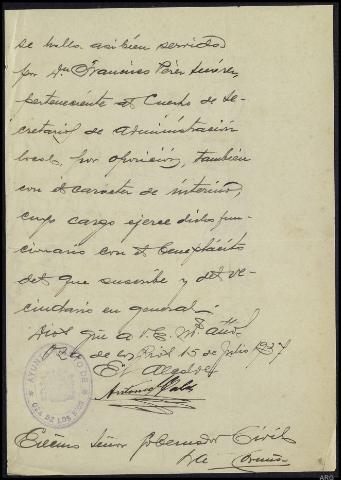 se halla asi bien servido
por Dn Francisco Pérez Suárez,
perteneciente al Cuerpo de Se-
cretarios de Administración
local, por oposición, tambien
con el caracter de interino,
cuyo cargo ejerce dicho fun-
cionario con el beneplácito
del que suscribe y del ve-
cindario en general.
Dios gûe a V.E. ms. años.
de los Rios 15 de Julio 1937
El Alcalde
Antonio
AYUNTAMIENTO DE
OZA DE LOS RIOS
Excmo Señor Gobernador Civil
La Coruña
ARG